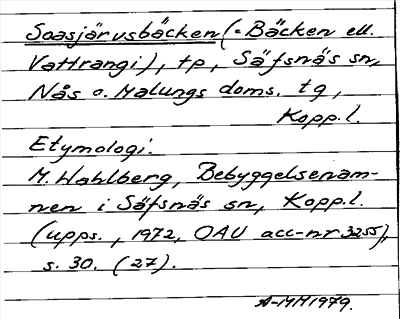 Soasjärvsbäcken (= Bäcken ell.
Vattrangi), tp, Säfsnäs sn,
Nås o. Malungs doms. tg,
Kopp.l.
Etymologi:
M. Wahlberg, Bebyggelsenam-
nen i Säfsnäs sn, Kopp.l.
(upps., 1972, OAU acc-nr 3255),
s. 30. (27).
A-MH 1979.